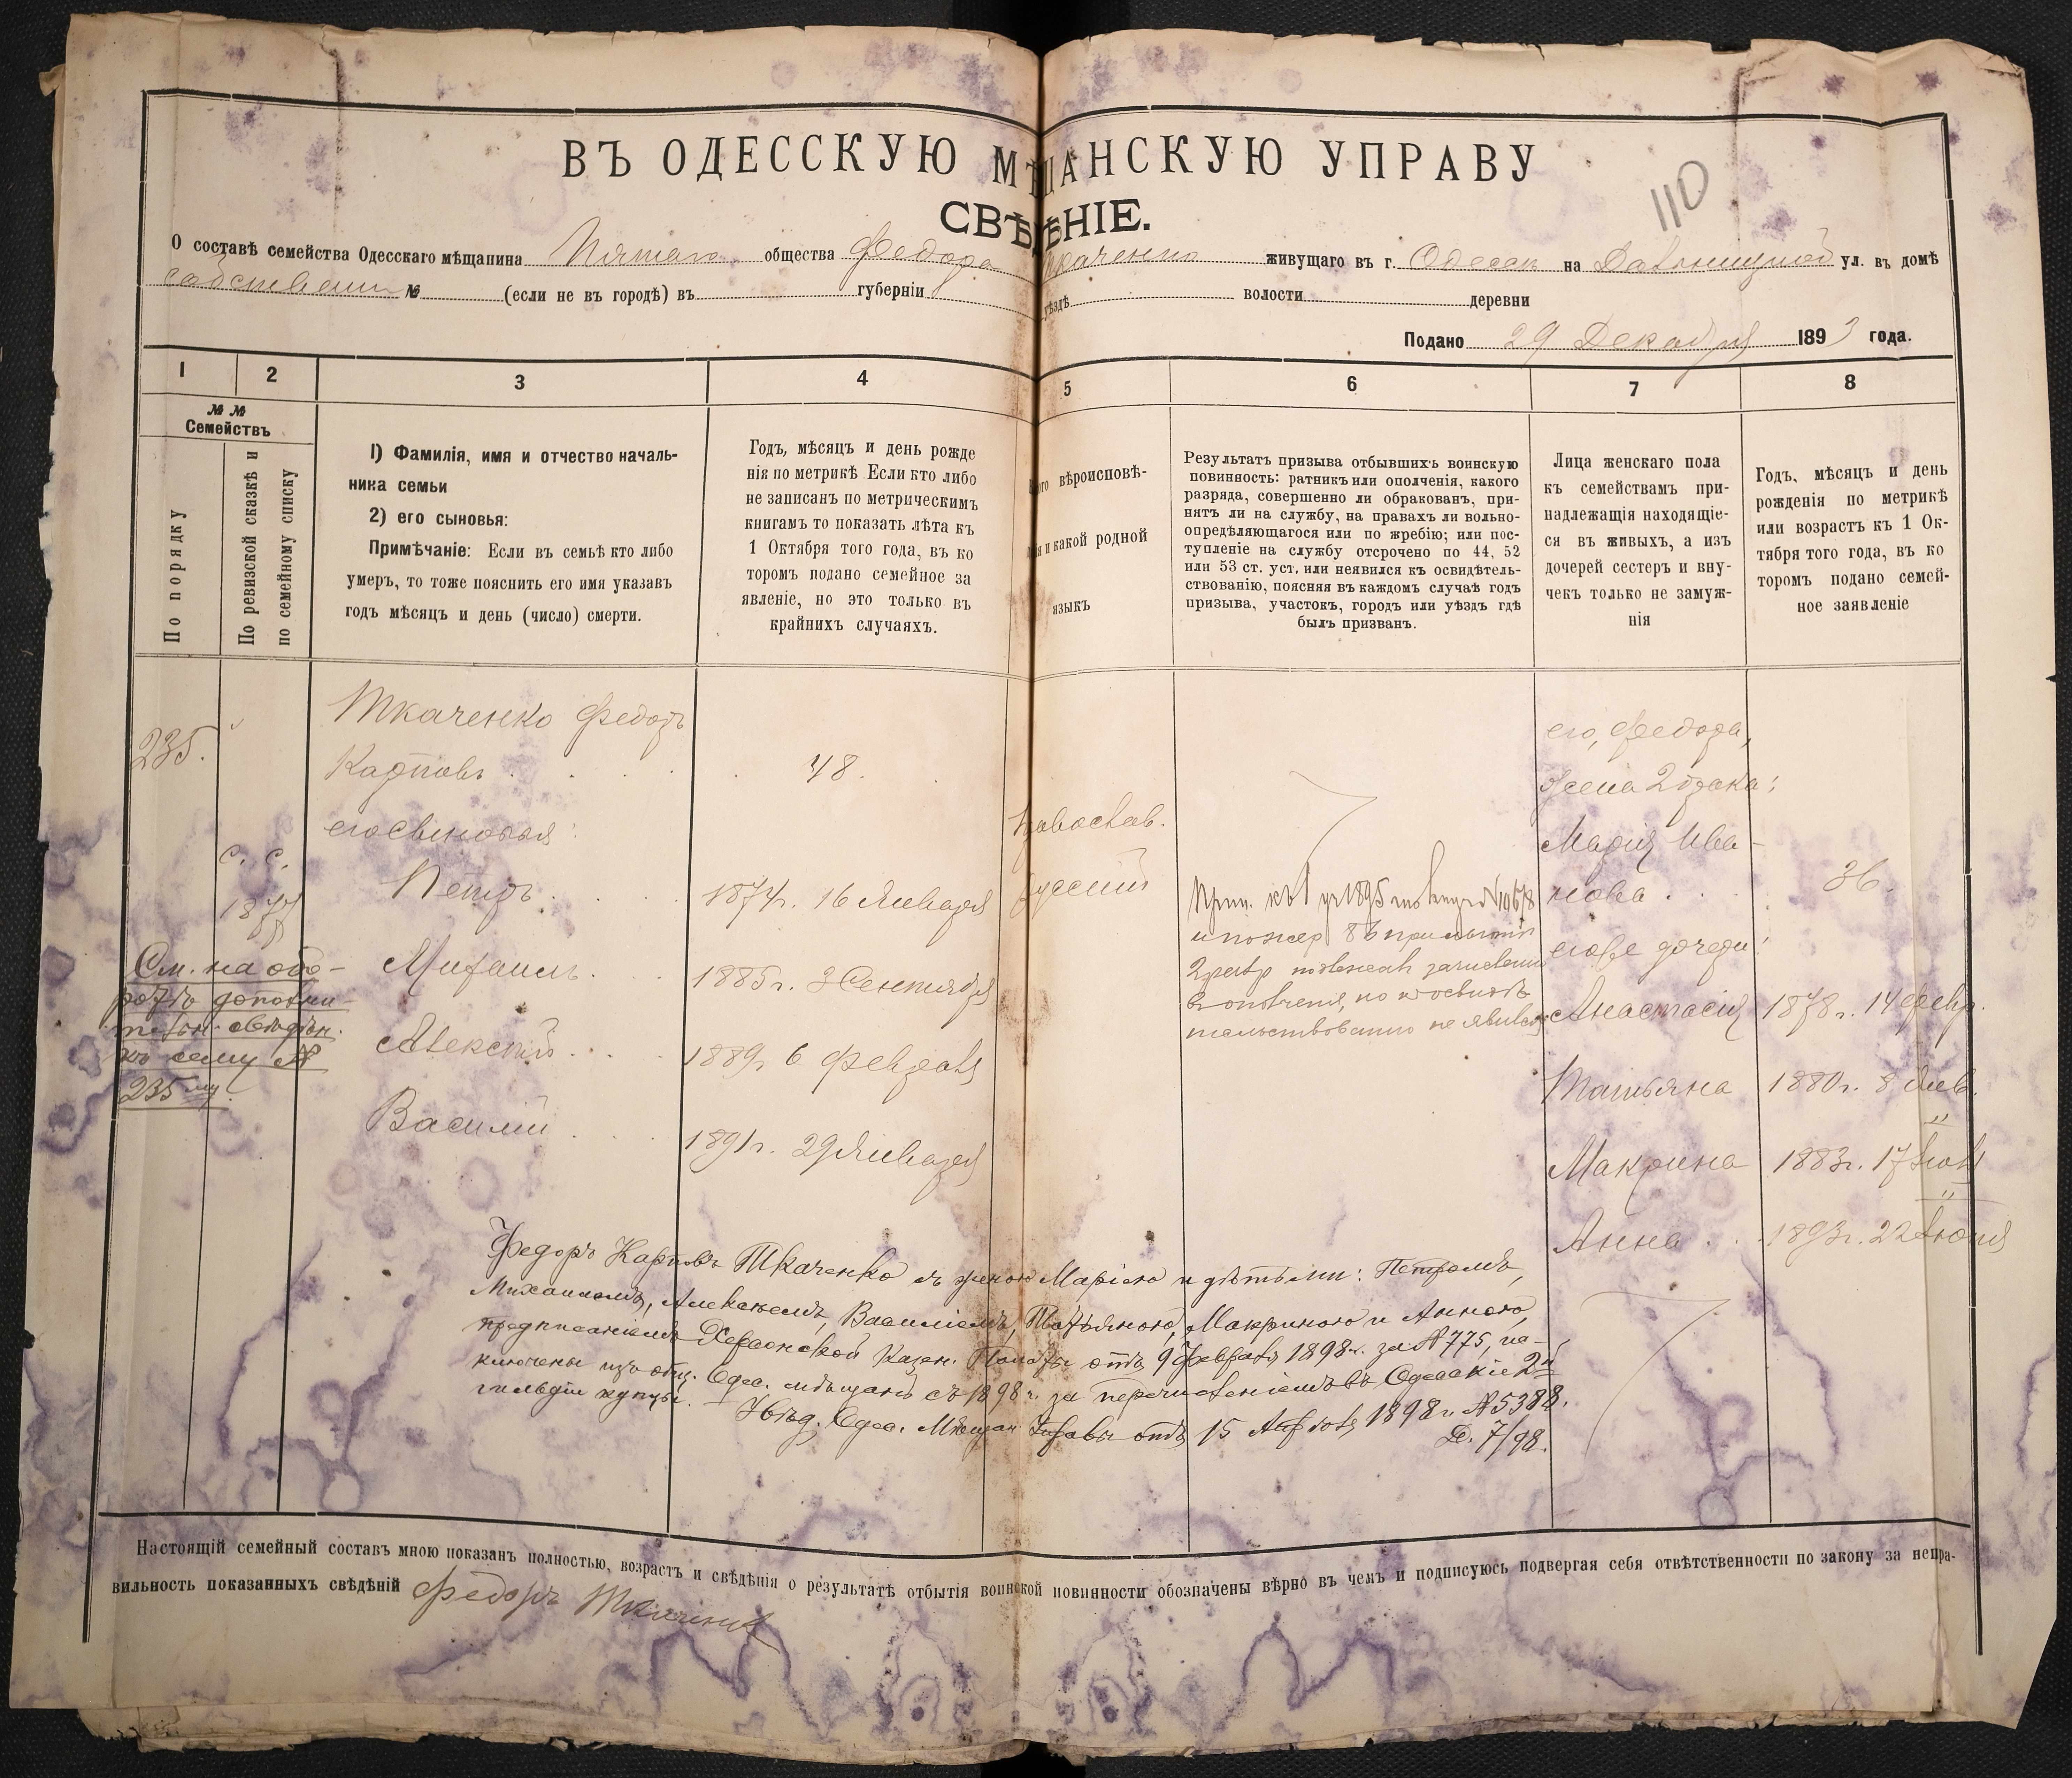 ВЪ ОДЕССКУЮ МѢЩАНСКУЮ УПРАВУ
110
СВѢДѢНІЕ.
О составѣ семейства Одесскаго мѣщанина Пятаго общества Федора Ткаченко живущаго въ г. Одессѣ на Дальницкой ул. въ домѣ
собственн № (если не въ городѣ) въ губерніи уѣздѣ волости деревни
Подано 29 Декабря 1893 года.
1 2 3 4 5 6 7 8
№№
Семействъ
По порядку
По ревизской сказкѣ и
по семейному списку
1) Фамилія, имя и отчество началь-
ника семьи
2) его сыновья:
Примѣчаніе: Если въ семьѣ кто либо
умеръ, то тоже пояснить его имя указавъ
годъ мѣсяцъ и день (число) смерти.
Годъ, мѣсяцъ и день рожде
нія по метрикѣ Если кто либо
не записанъ по метрическимъ
книгамъ то показать лѣта къ
1 Октября того года, въ ко
торомъ подано семейное за
явленіе, но это только въ
крайнихъ случаяхъ.
вѣроисповѣ-
и какой родной
языкъ
Результатъ призыва отбывшихъ воинскую
повинность: ратникъ или ополченія, какого
разряда, совершенно ли обракованъ, при-
нятъ ли на службу, на правахъ ли вольно-
опредѣляющагося или по жребію; или пос-
тупленіе на службу отсрочено по 44, 52
или 53 ст. уст. или неявился къ освидѣтель-
ствованію, поясняя въ каждомъ случаѣ годъ
призыва, участокъ, городъ или уѣздъ гдѣ
былъ призванъ.
Лица женскаго пола
къ семействамъ при-
надлежащія находящіе-
ся въ живыхъ, а изъ
дочерей сестеръ и вну-
чекъ только не замуж-
нія
Годъ, мѣсяцъ и день
рожденія по метрикѣ
или возрастъ къ 1 Ок-
тября того года, въ ко
торомъ подано семей-
ное заявленіе
235.
с. с.
1877
См. на обо-
ротѣ дополни-
тельн. свѣдѣн.
къ сему №
235 му.
Ткаченко Федоръ
Карповъ
его сыновья:
Петръ
Михаилъ
Алексѣй
Василій
48.
1874г. 16 Января
1885г. 3 Сентября
1889г. 6 Февраля
1891г. 29 Января
Православ.
русскій
Прин. къ 1895
и по жер 86 при
2 разр подлежалъ зачисленію
въ ополченія, но къ освидѣ
тельствованію не явился
его, Федора,
жена 2 брака:
Марія Ива-
нова
его же дочери:
Анастасія
Татьяна
Макрина
Анна
36.
1878г. 14 Февр.
1880г. 8 Янв.
1883г. 17 Іюля
1893г. 22 Іюня
Федоръ Карповъ Ткаченко съ женою Маріею и дѣтьми: Петромъ,
Михаиломъ, Алексѣемъ, Василіемъ, Татьяною, Макриною и Анною,
предписаніемъ Херсонской Казен. Палаты отъ 9 Февраля 1898г. за №775, ис-
ключены изъ общ. Одес. мѣщанъ съ 1898г. за перечисленіемъ въ Одесскіе 2й
гильдіи купцы. — Увѣд. Одес. Мѣщан Управы отъ 15 Апрѣля 1898г. №5388.
Д. 7/98.
Настоящій семейный составъ мною показанъ полностью, возрастъ и свѣдѣнія о результатѣ отбытія воинской повинности обозначены вѣрно въ чемъ и подписуюсь подвергая себя отвѣтственности по закону за непра-
вильность показанныхъ свѣдѣній Федоръ Ткаченко